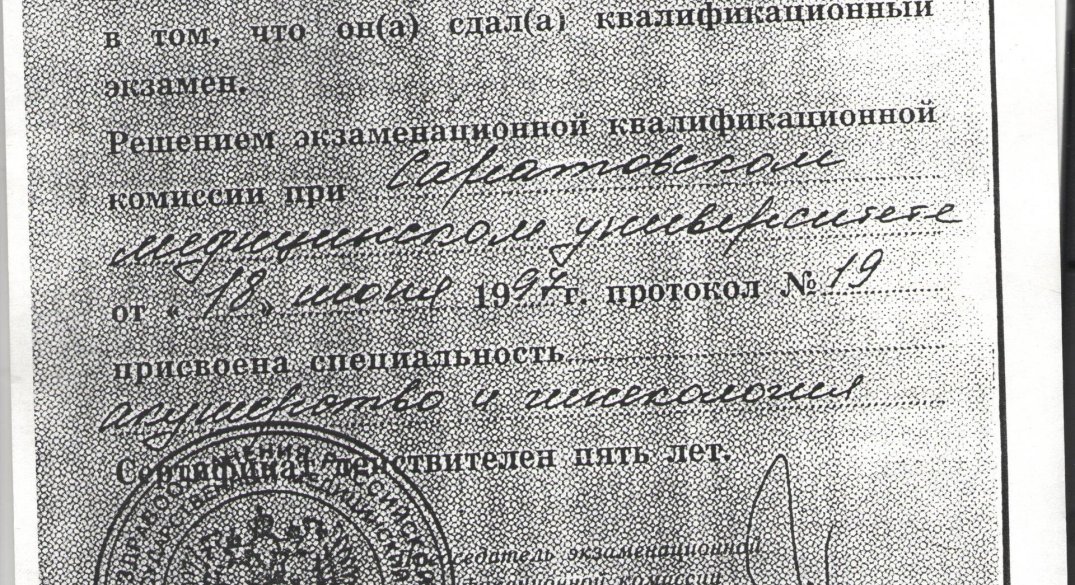 в том, что он(а) сдал(а) квалификационный
экзамен.
Решением экзаменационной квалификационной
комиссии при Саратовском
медицинском университете
от «18» июня 1997 г. протокол № 19
присвоена специальность
акушерство и гинекология
Сертификат действителен пять лет.
Председатель экзаменационной
комиссии
ЗДРАВООХРАНЕНИЯ РОССИЙСКО
ГОСУДАРСТВЕННЫЙ МЕДИЦИНСК